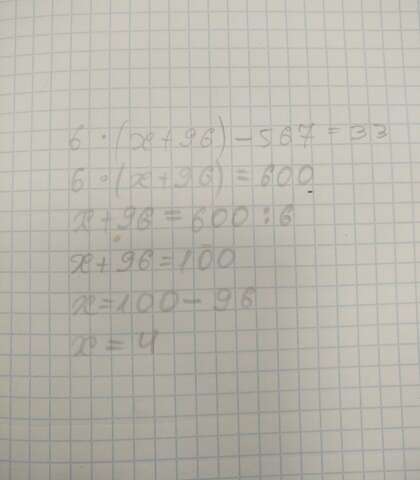 6 · (x + 96) - 567 = 33
6 · (x + 96) = 600
x + 96 = 600 : 6
x + 96 = 100
x = 100 - 96
x = 4